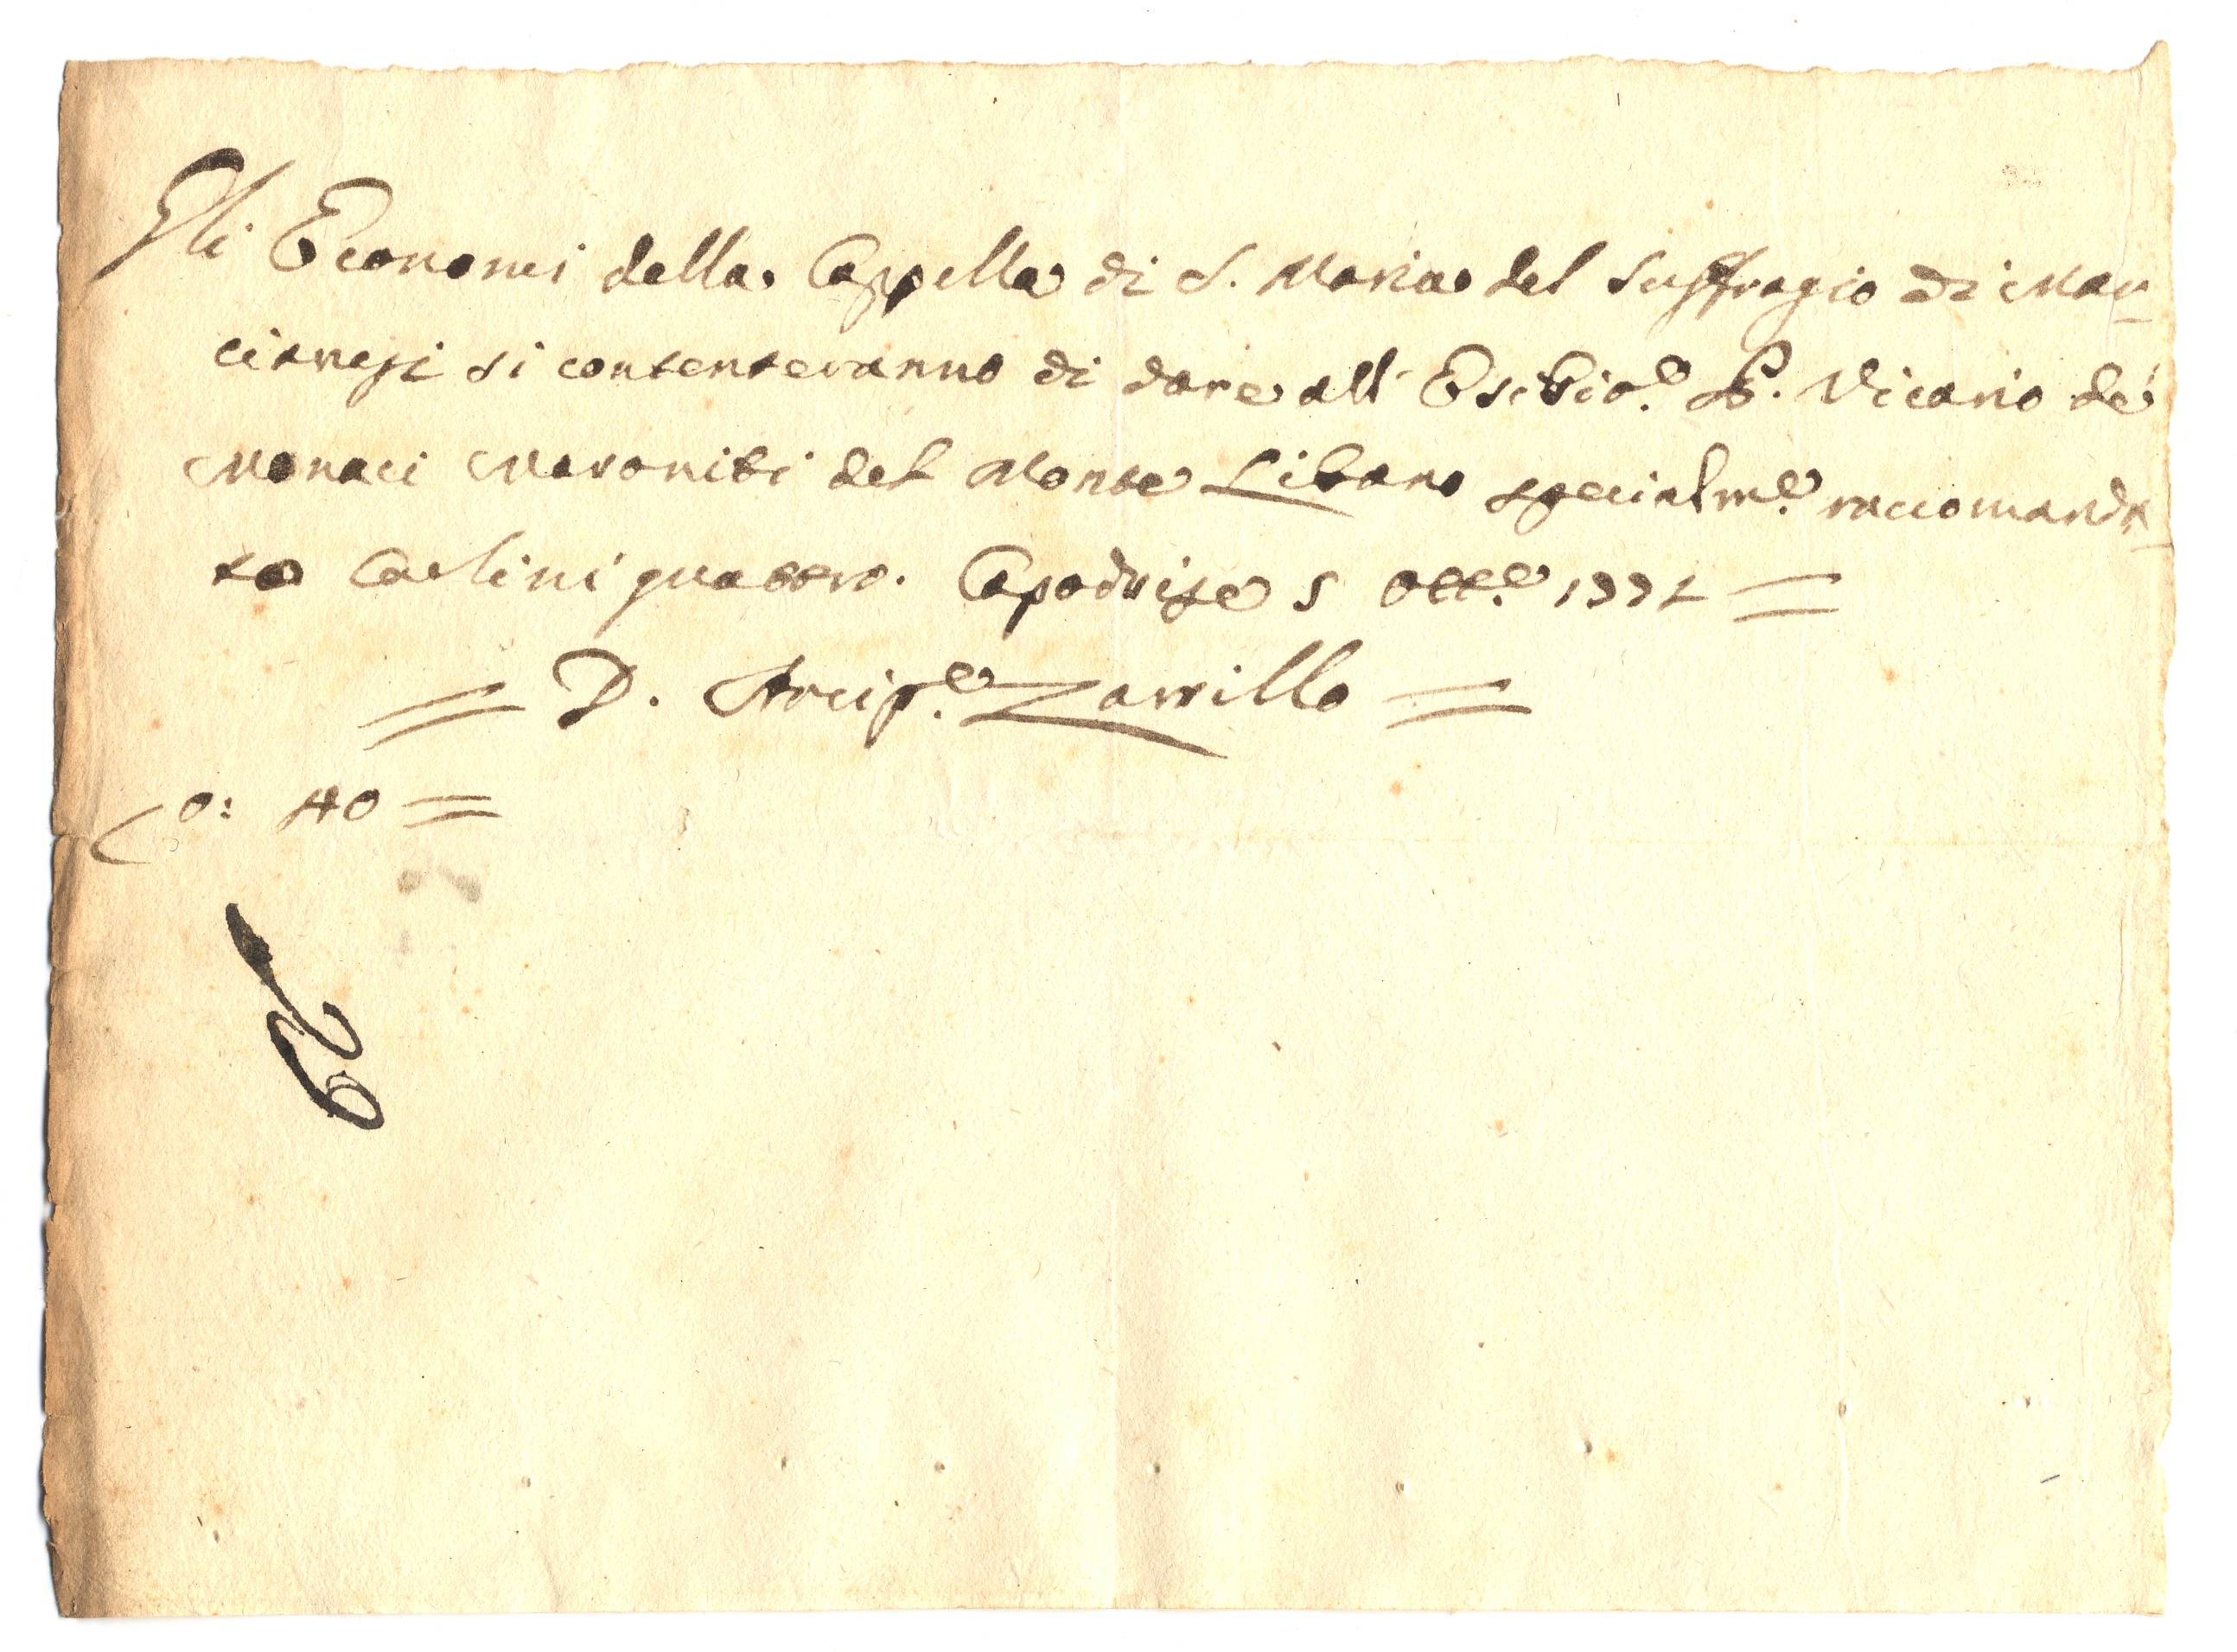 Gli Economi della Cappella di S. Maria del Suffragio di Mar_
cianesi si contenteranno di dare all' Esibio.e P. Vicario de'
Monaci Maroniti del Monte Libano specialm.e raccomanda_
to Carlini quattro. Capodrise 5 Ott.e 1771 =
= D. Arcip.e Zarrillo =
0: 40 =